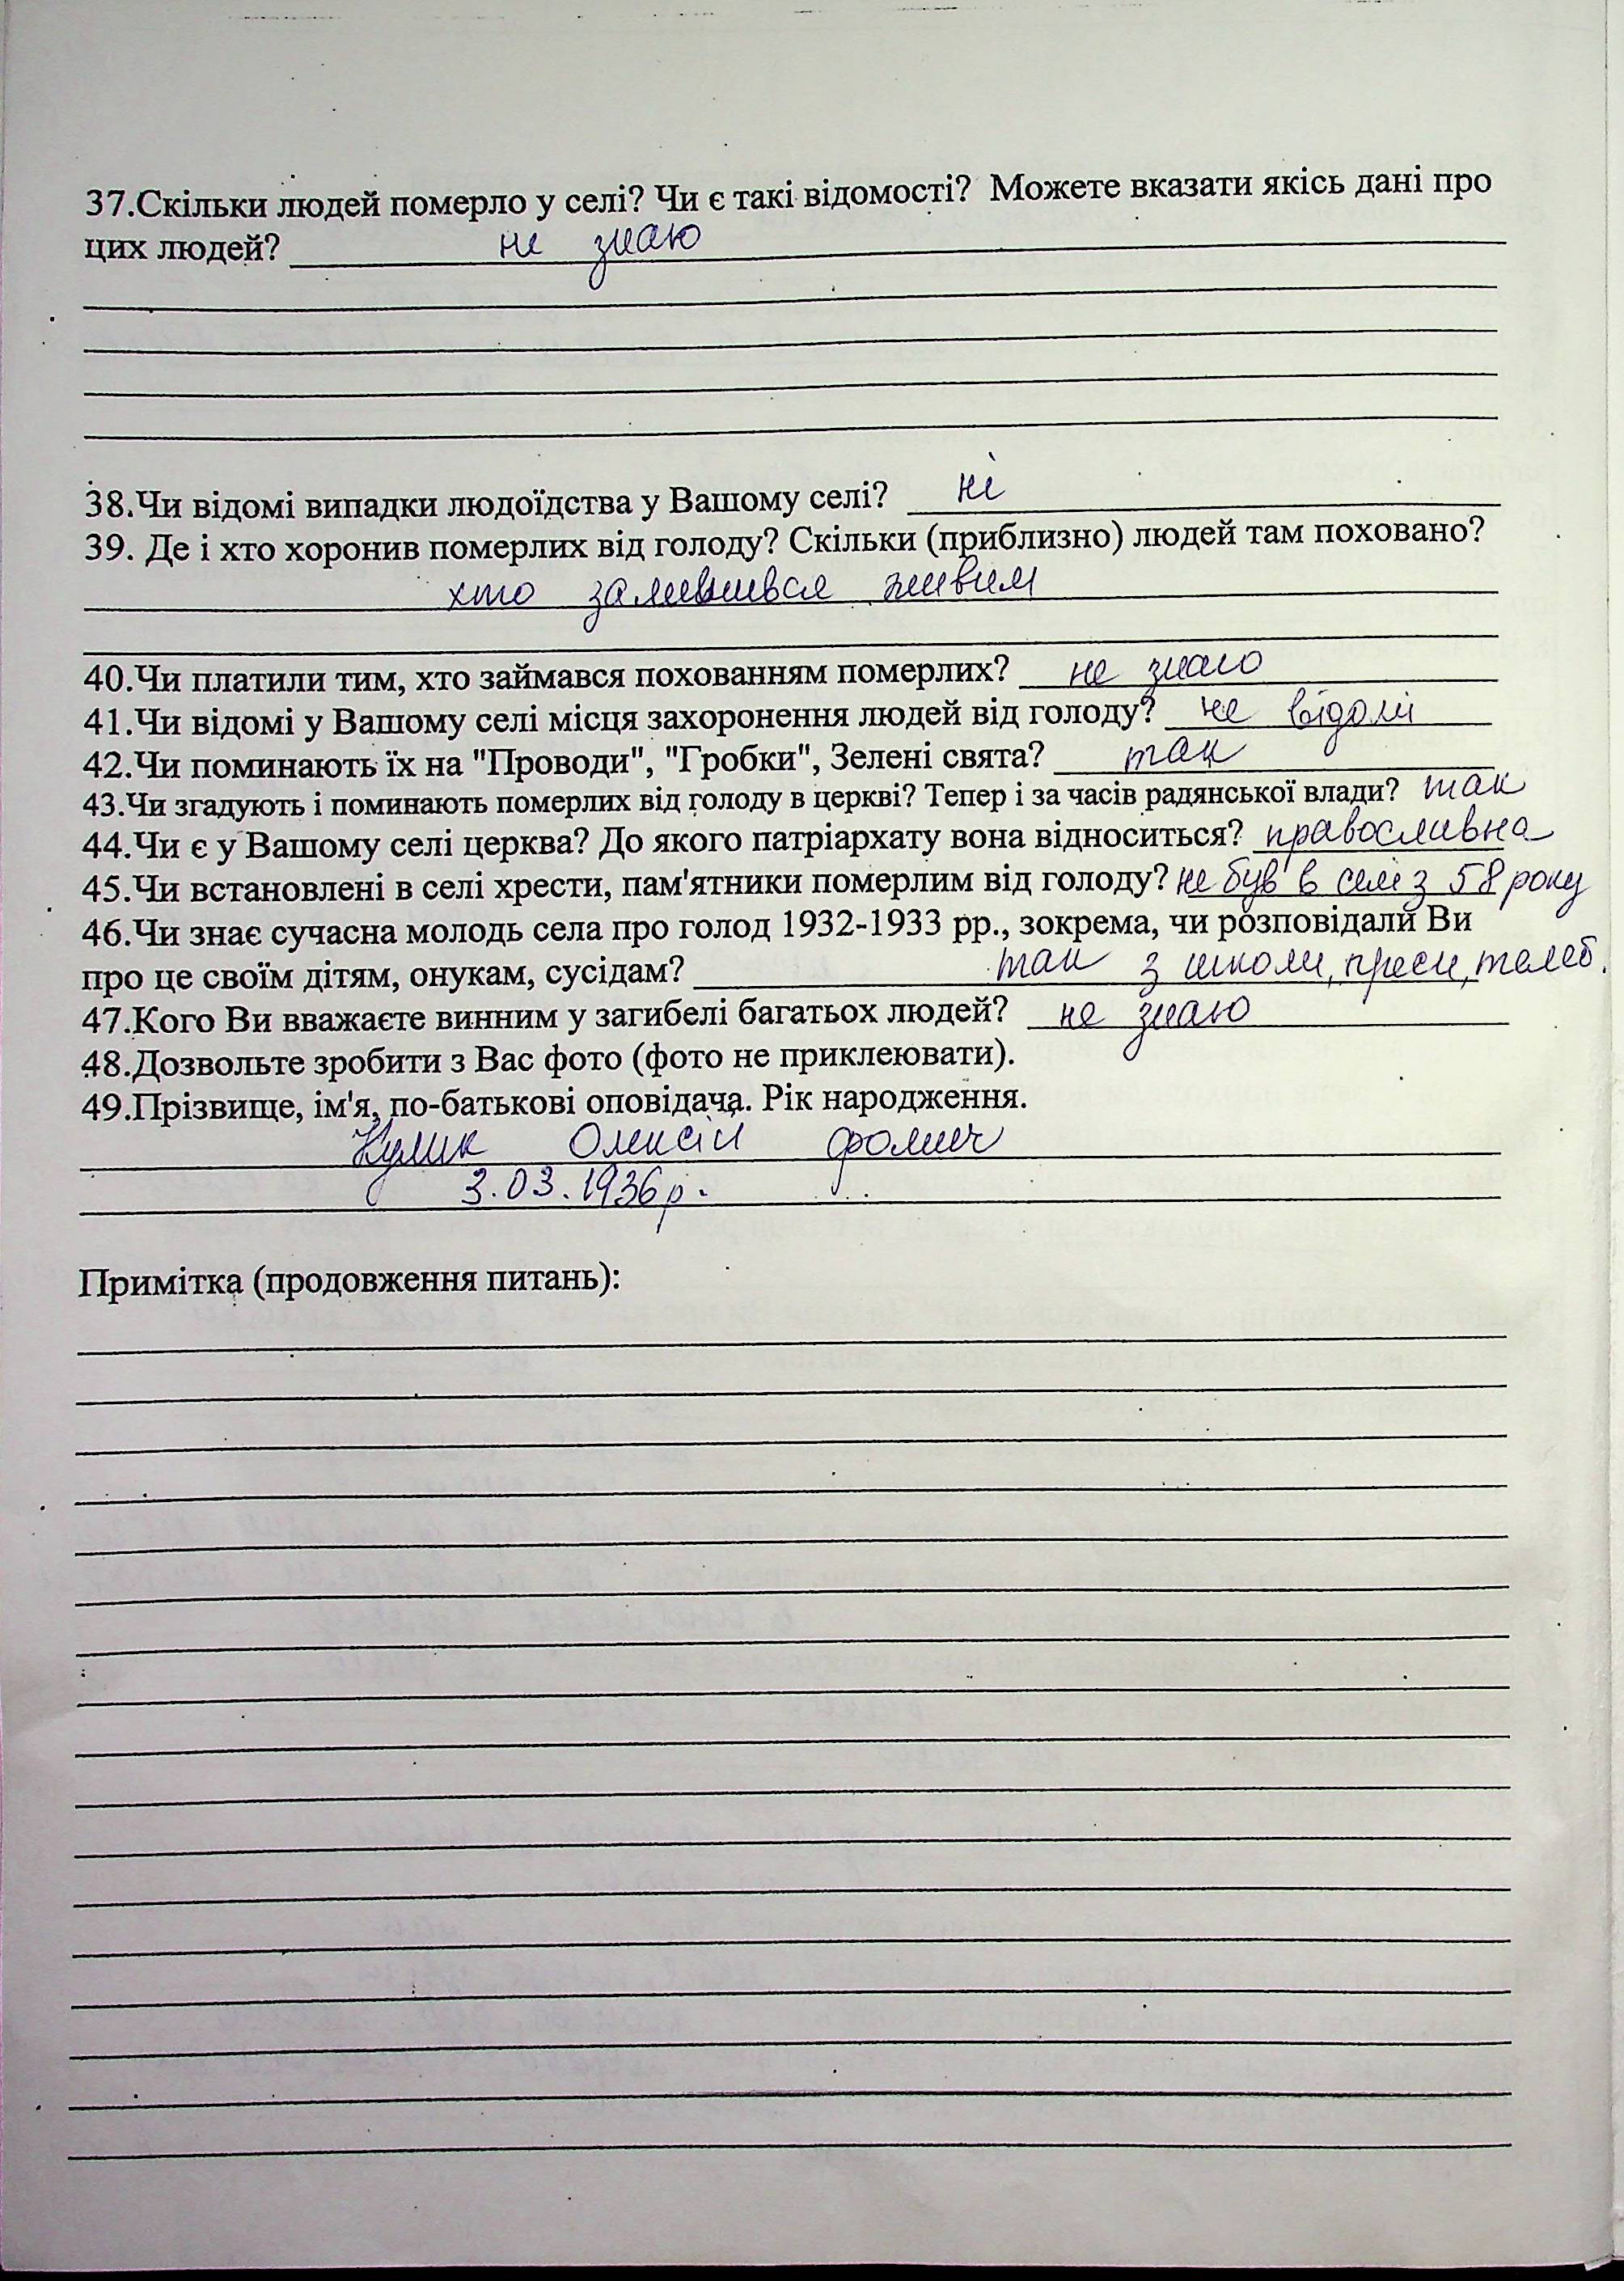 37.Скільки людей померло у селі? Чи є такі відомості? Можете вказати якісь дані про
цих людей? не знаю
38.Чи відомі випадки людоїдства у Вашому селі? ні
39. Де і хто хоронив померлих від голоду? Скільки (приблизно) людей там поховано?
хто залишився живим
40.Чи платили тим, хто займався похованням померлих? не знаю
41.Чи відомі у Вашому селі місця захоронення людей від голоду? не відомі
42.Чи поминають їх на "Проводи", "Гробки", Зелені свята? так
43.Чи згадують і поминають померлих від голоду в церкві? Тепер і за часів радянської влади? так
44.Чи є у Вашому селі церква? До якого патріархату вона відноситься? православна
45.Чи встановлені в селі хрести, пам'ятники померлим від голоду? не був в селі з 58 року
46.Чи знає сучасна молодь села про голод 1932-1933 рр., зокрема, чи розповідали Ви
про це своїм дітям, онукам, сусідам? так з школи, преси, телеб.
47.Кого Ви вважаєте винним у загибелі багатьох людей? не знаю
48.Дозвольте зробити з Вас фото (фото не приклеювати).
49.Прізвище, ім'я, по-батькові оповідача. Рік народження.
Кулик Олексій Фомич
3.03.1936р.
Примітка (продовження питань):